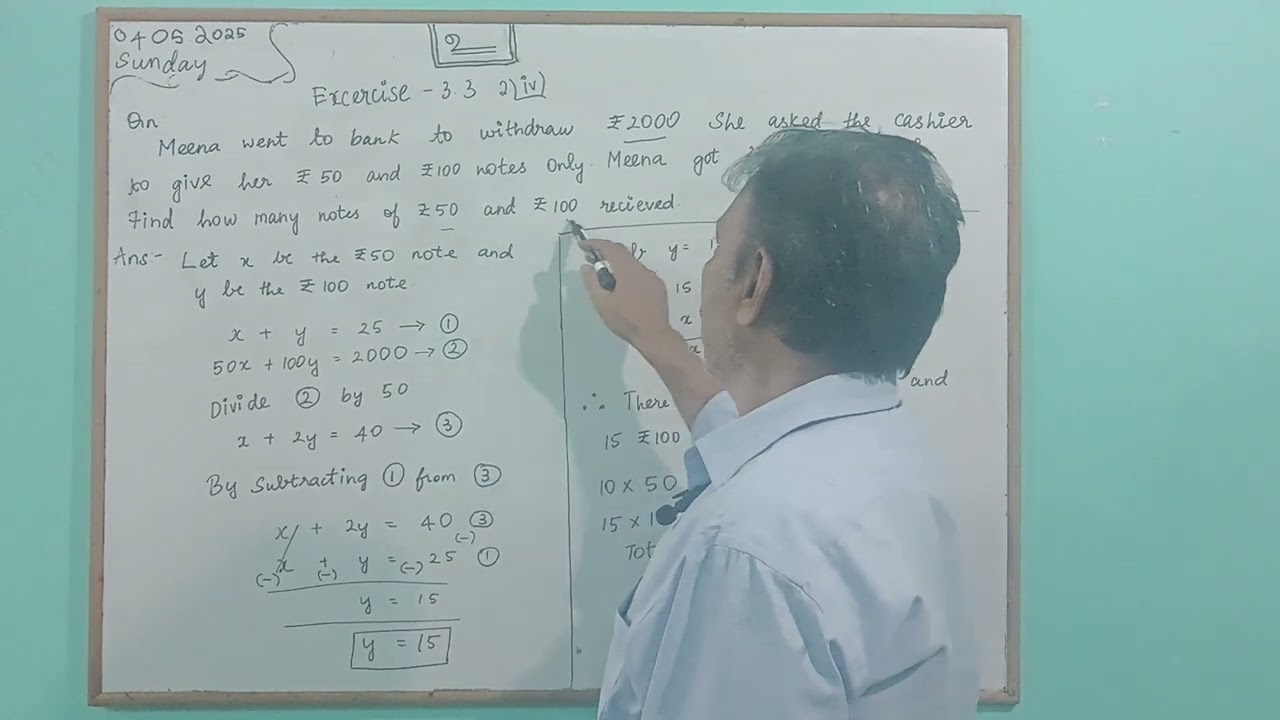 04 05 2025
Sunday
2
Excercise - 3.3 2) iv)
Qn
Meena went to bank to withdraw ₹2000 She asked the cashier
to give her ₹50 and ₹100 notes only. Meena got
Find how many notes of ₹50 and ₹100 recieved.
Ans:- Let x be the ₹50 note and
y be the ₹100 note.
x + y = 25 → ①
50x + 100y = 2000 → ②
Divide ② by 50
x + 2y = 40 → ③
By Subtracting ① from ③
x + 2y = 40 ③
(-)
x + y = 25 ①
(-) (-) (-)
y = 15
y = 15
y =
15
x
x
and
∴ There
15 ₹100
10 × 50
15 ×